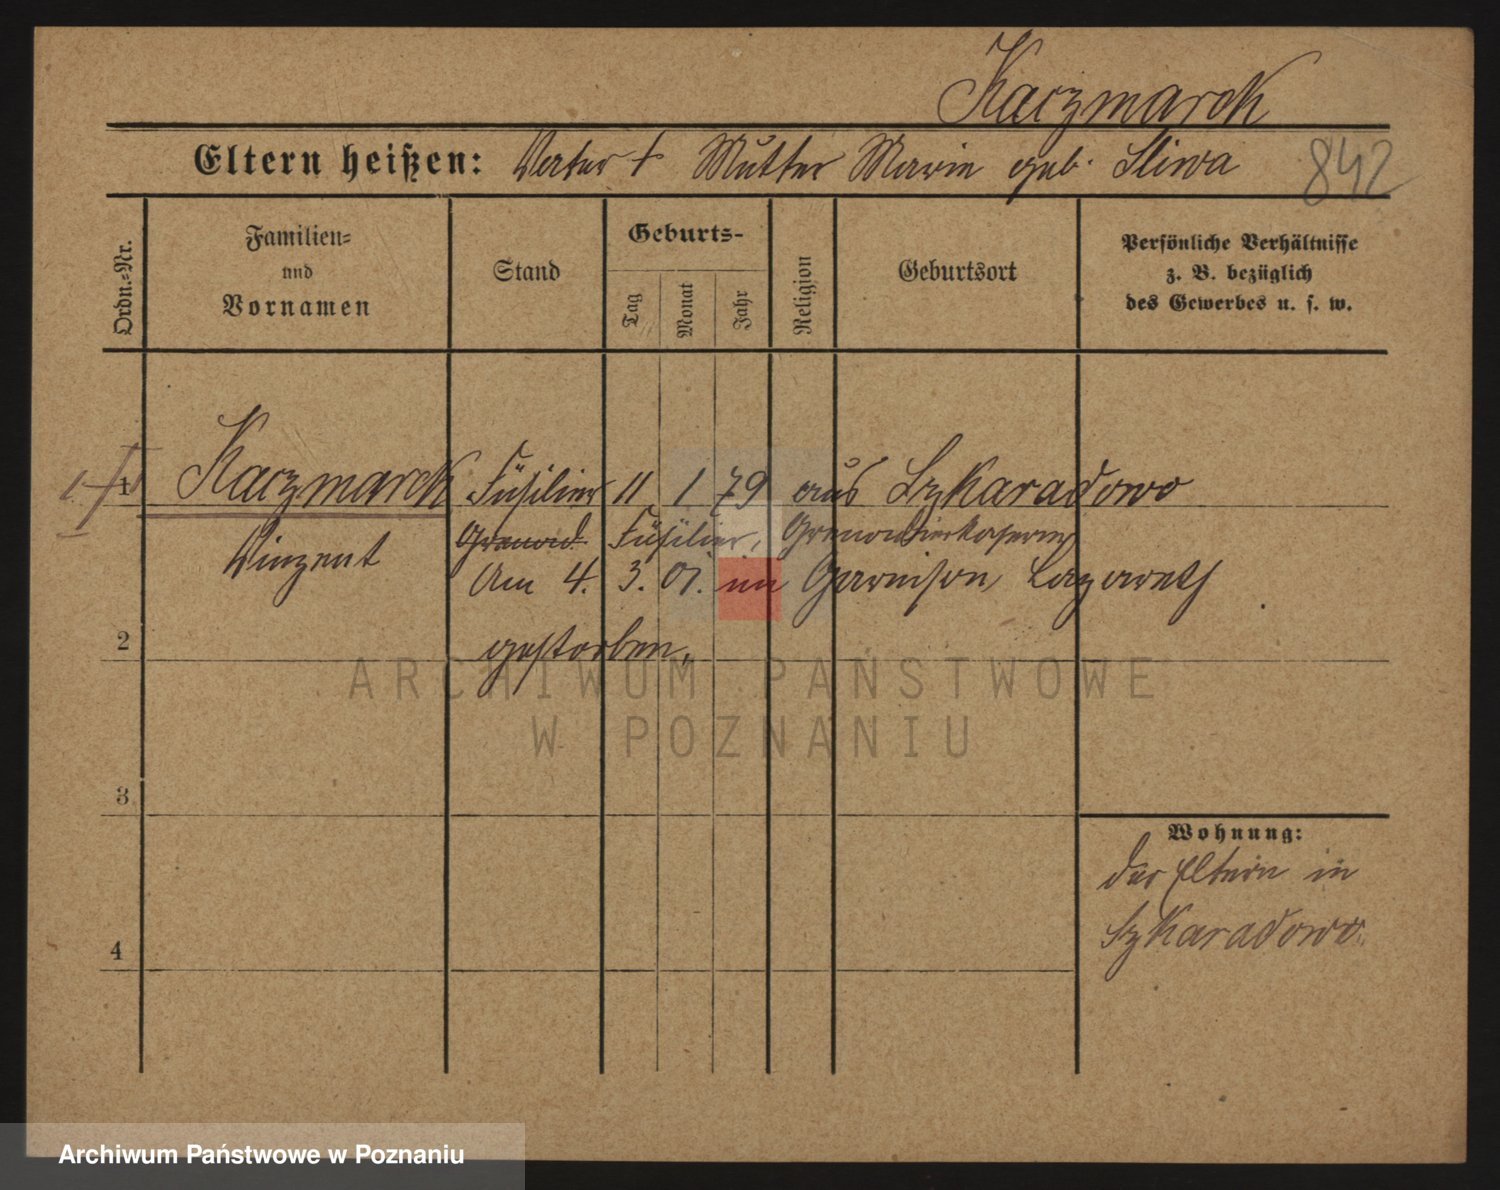 Kaczmarek
Eltern heißen: Vater † Mutter Marie geb. Sliwa 842
Ordn.-Nr.
Familien- und Vornamen
Stand
Geburts-
Tag Monat Jahr
Religion
Geburtsort
Persönliche Verhältnisse
z. B. bezüglich
des Gewerbes u. s. w.
1 Kaczmarek Füsilier 11 1 79 aus Szkaradowo
Vinzent Grenad. Füsilier, Grenadierkaserne
Am 4. 3. 01. im Garnison Lazareth
2 gestorben.
ARCHIWUM PAŃSTWOWE
W POZNANIU
3
Wohnung:
der Eltern in
4 Szkaradowo.
Archiwum Państwowe w Poznaniu